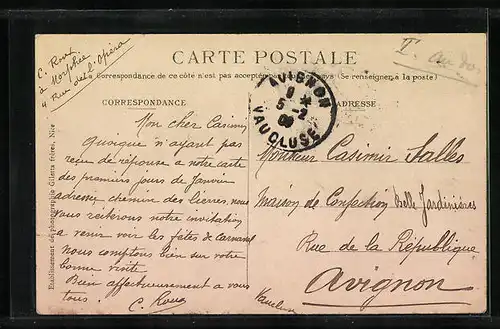 C. Roux
à Morphée
4 Rue de l'Opéra
T.
CARTE POSTALE
Correspondance de ce côté n'est pas acceptée pays (Se renseigner à la poste)
CORRESPONDANCE
ADRESSE
AVIGNON
5-2
VAUCLUSE
Mon cher Casimir
Quoique n'ayant pas
reçu de réponse a notre carte
des premiers jours de Janvier
adressée chemin des lierres, nous
vous reiterons notre invitation
a venir voir les fêtes de Carnaval
nous comptons bien sur votre
bonne visite
Bien affectueusement a vous
tous. C. Roux
Monsieur Casimir Salles
Maison de Confection Belle Jardinière
Rue de la République
Avignon
Vaucluse
Etablissement de photographie Giletta frères, Nice